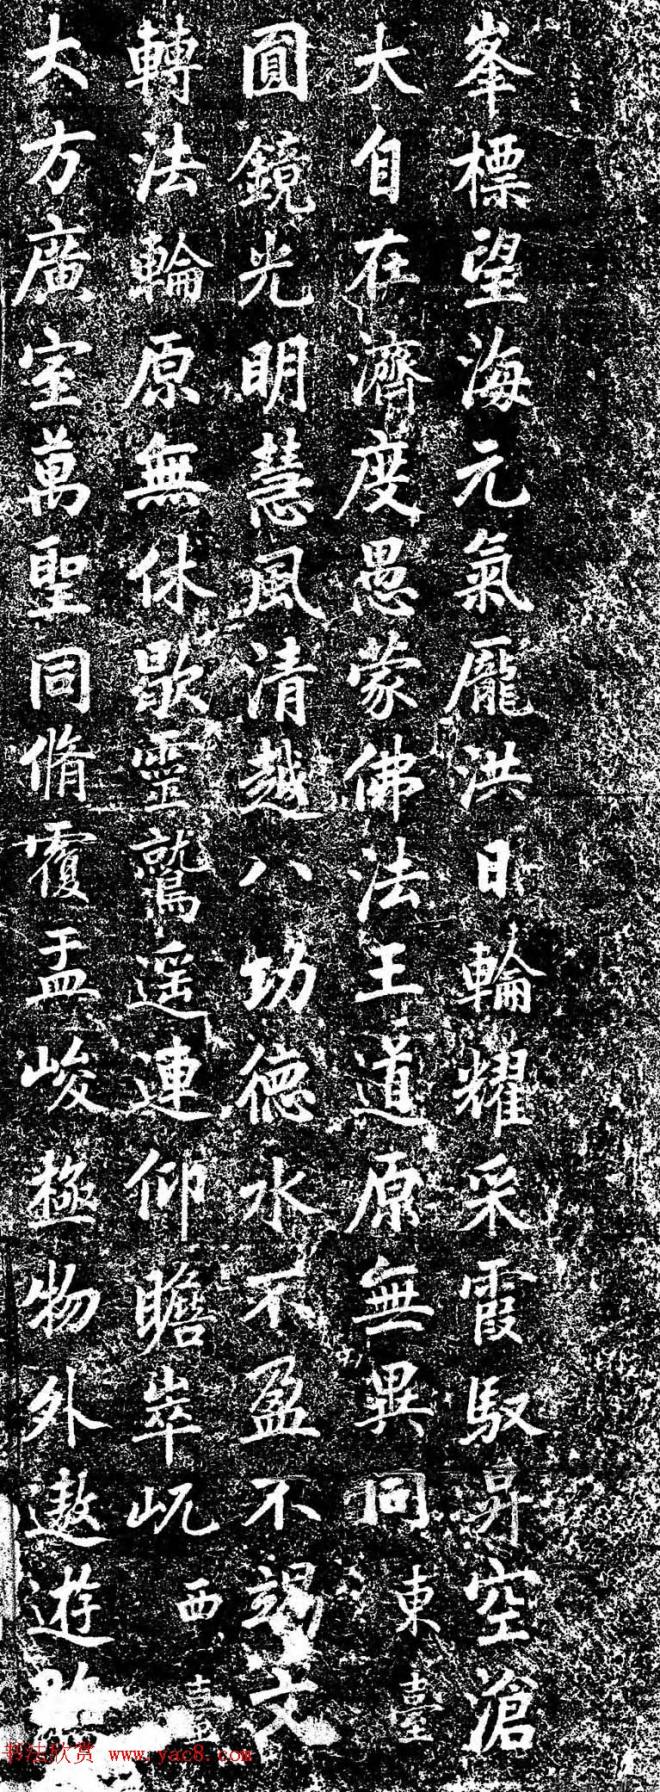 峯標望海元氣龐洪日輪耀采霞馭昇空滄
大自在濟度愚蒙佛法王道原無異同 東臺
圓鏡光明慧風清越八功德水不盈不竭文
轉法輪原無休歇靈鷲遥連仰瞻崒屼 西臺
大方廣室萬聖同脩覆盂峻極物外遨遊
书法欣赏 www.yac8.com